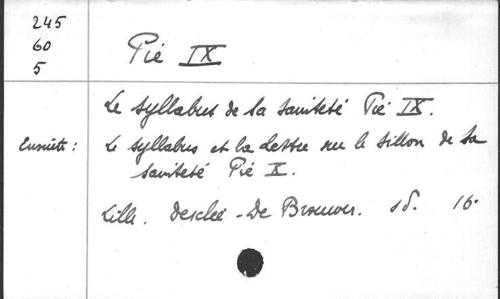 245
60
5
Pie IX
Le syllabus de la sainteté Pie IX.
Ensuite : Le syllabus et la lettre sur le Sillon de Sa
Sainteté Pie X.
Lille. Desclée - De Brouwer. sd. 16°